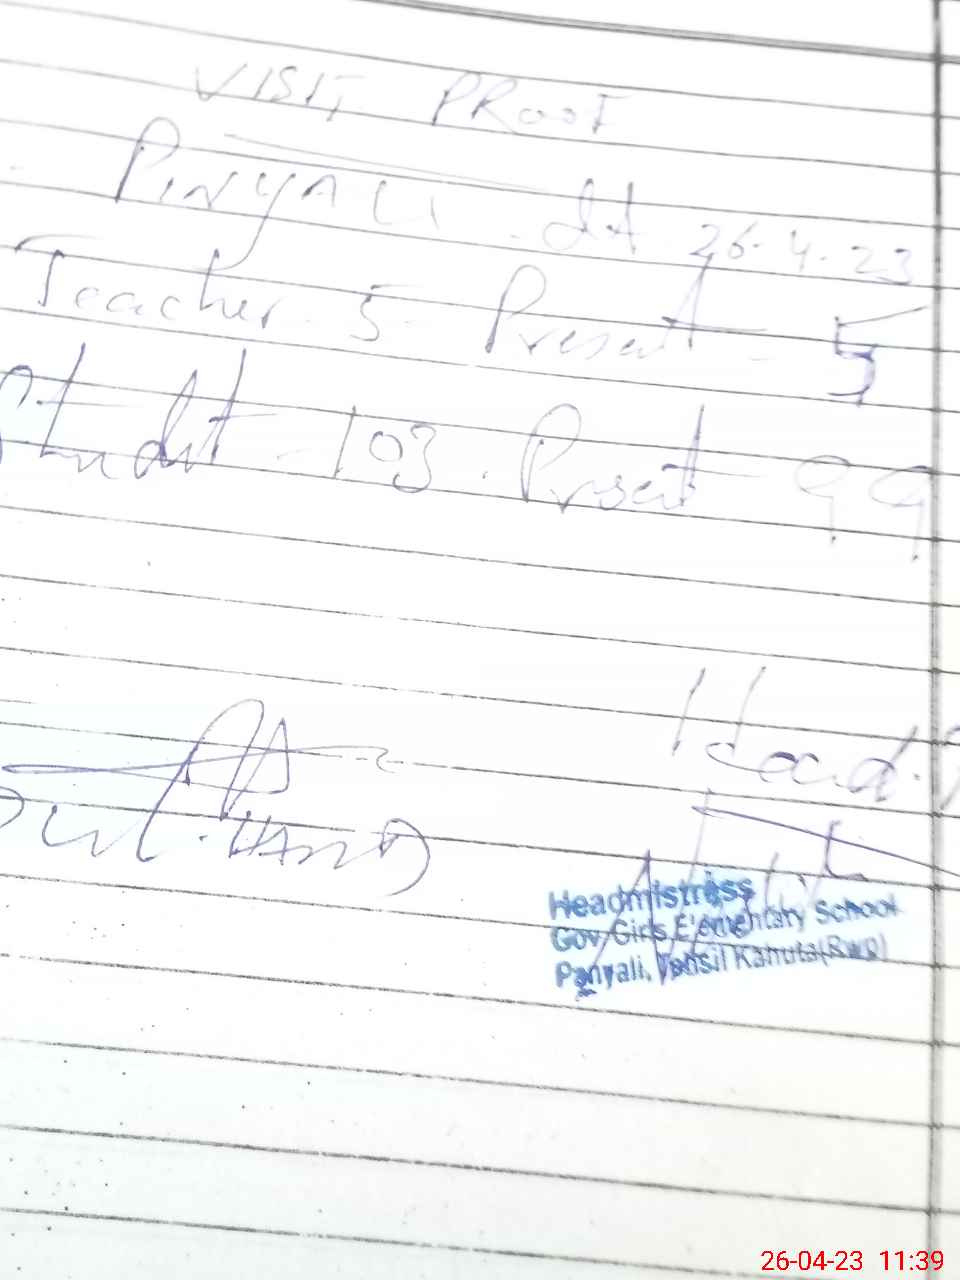 VISIT PROOF
PINYALI dt 26.4.23
Teacher - 5 Present - 5
Studt - 103. Prsent - 99
Head.
Headmistress
Gov Girls Elementary School
Panyali, Tehsil Kahuta(Rwp)
26-04-23 11:39